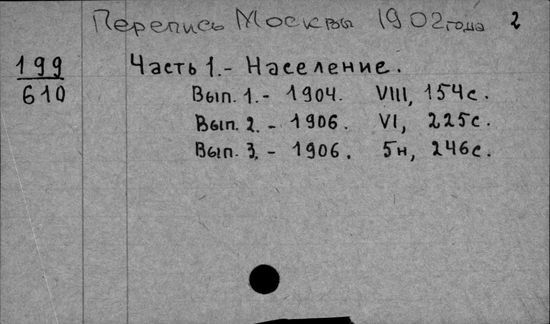 Перепись Москвы 1902 года 2
199
610
Часть 1.- Население.
Вып. 1.- 1904. VIII, 154с.
Вып. 2.- 1906. VI, 225с.
Вып. 3.- 1906. 5н, 246с.